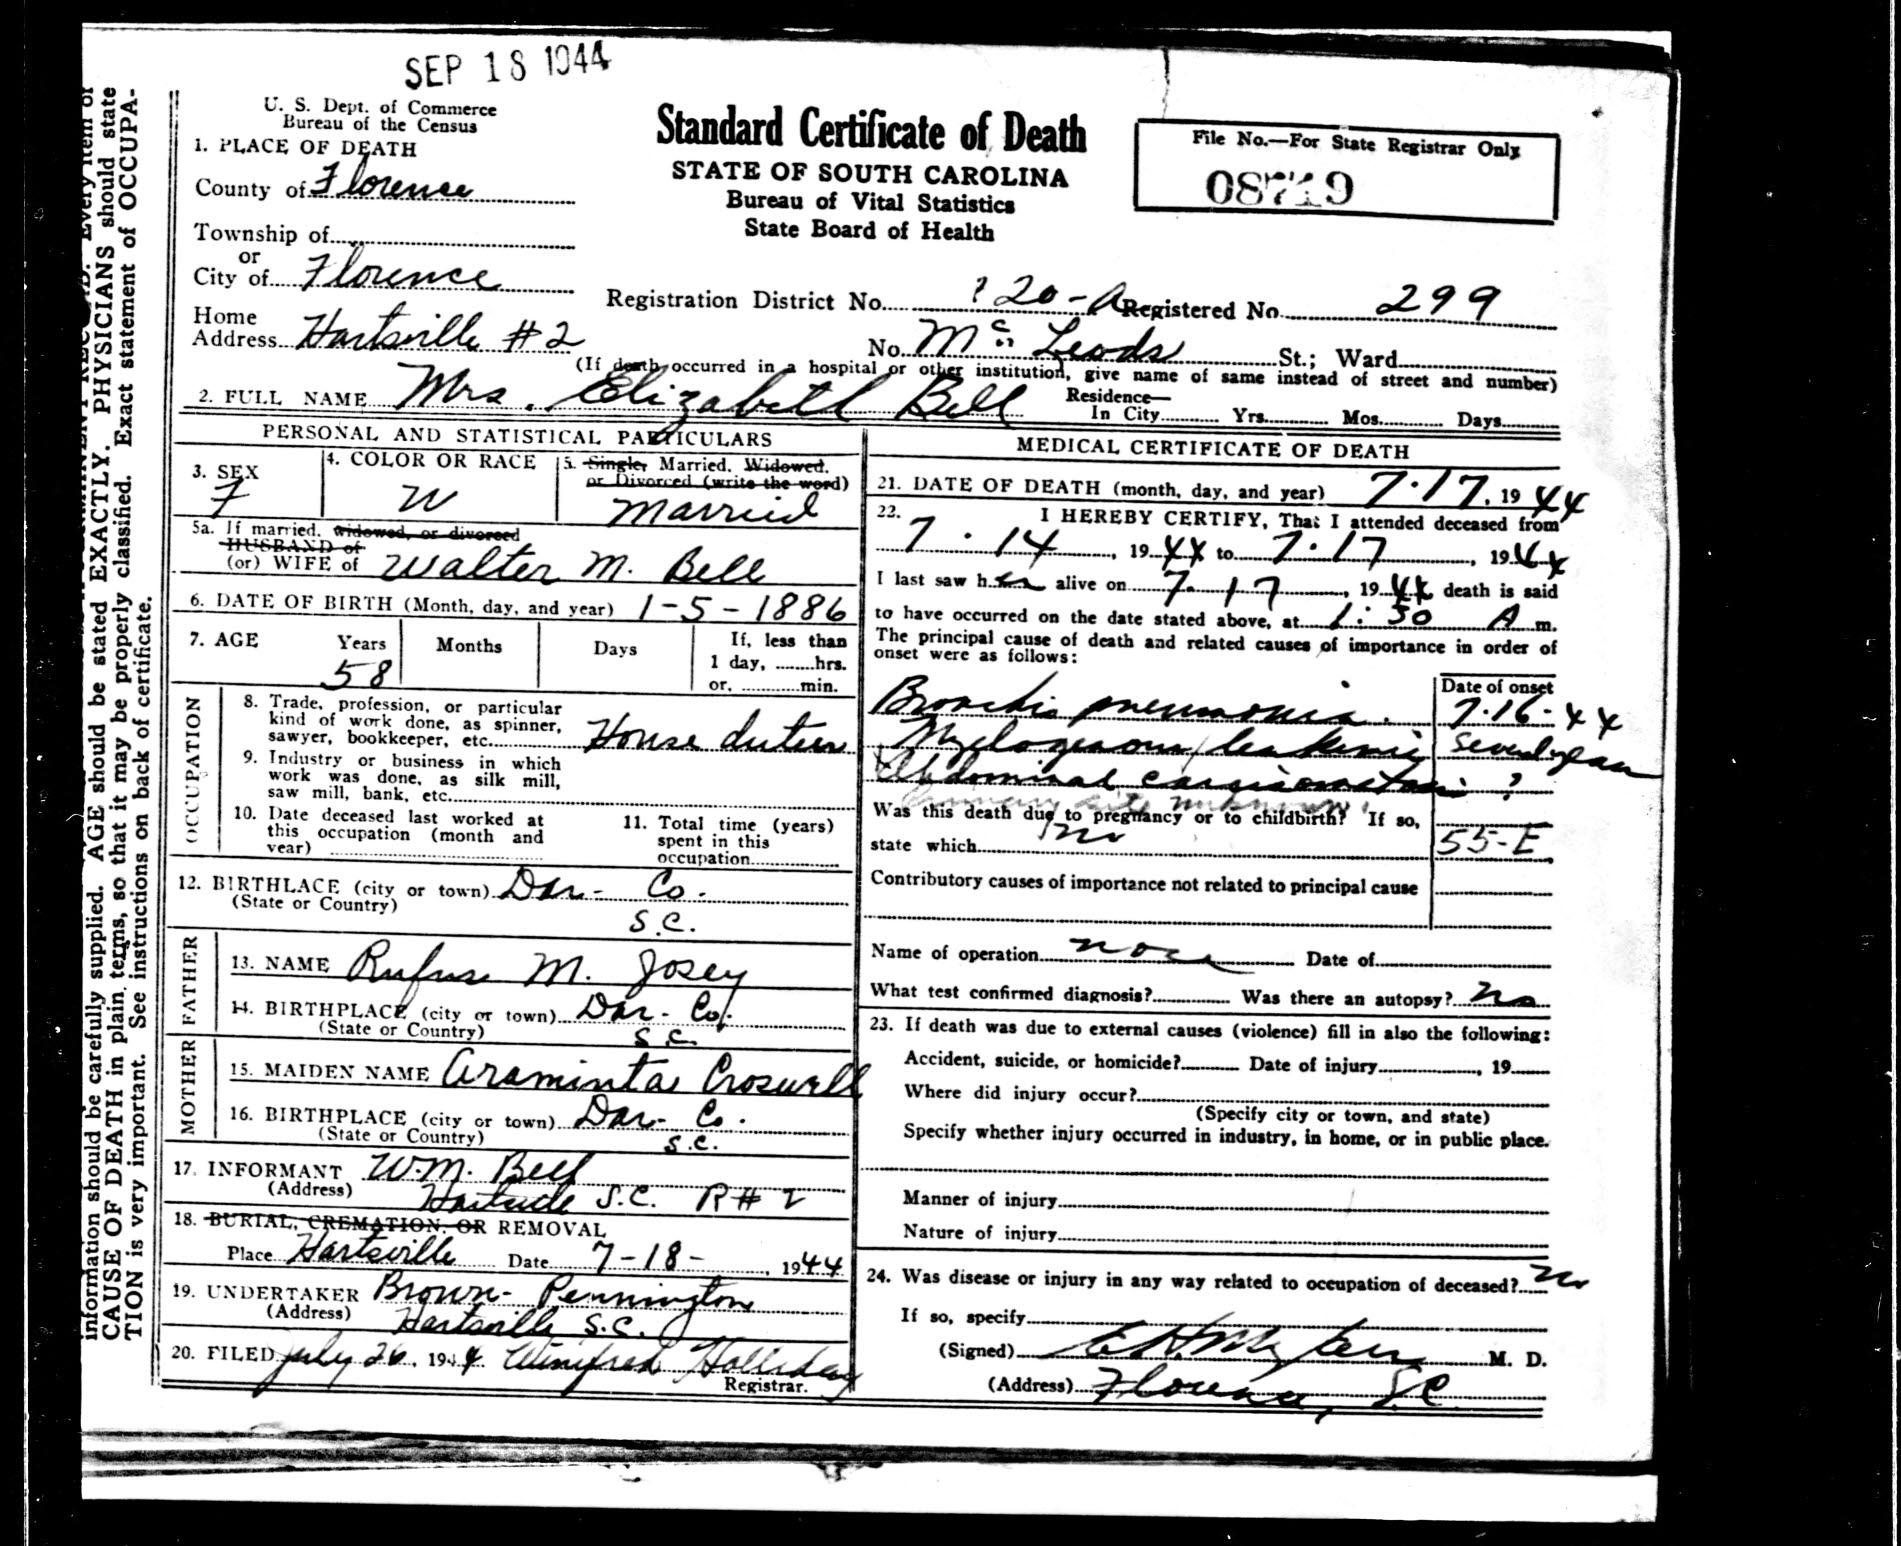 SEP 18 1944
U. S. Dept. of Commerce
Bureau of the Census
Standard Certificate of Death
STATE OF SOUTH CAROLINA
Bureau of Vital Statistics
State Board of Health
File No.—For State Registrar Only
08719
1. PLACE OF DEATH
County of Florence
Township of
or
City of Florence
Registration District No. 20-A Registered No. 299
Home
Address Hartsville #2
No. McLeods St.; Ward
(If death occurred in a hospital or other institution, give name of same instead of street and number)
2. FULL NAME Mrs. Elizabeth Bell
Residence—
In City Yrs. Mos. Days
PERSONAL AND STATISTICAL PARTICULARS
3. SEX
F
4. COLOR OR RACE
W
5. Single, Married, Widowed,
or Divorced (write the word)
Married
5a. If married, widowed, or divorced
HUSBAND of
(or) WIFE of Walter M. Bell
6. DATE OF BIRTH (Month, day, and year) 1-5-1886
7. AGE Years Months Days If, less than
58 1 day, hrs.
or, min.
OCCUPATION
8. Trade, profession, or particular
kind of work done, as spinner,
sawyer, bookkeeper, etc. House duties
9. Industry or business in which
work was done, as silk mill,
saw mill, bank, etc.
10. Date deceased last worked at
this occupation (month and
year)
11. Total time (years)
spent in this
occupation
12. BIRTHLACE (city or town) Dar- Co.
(State or Country) S.C.
FATHER
13. NAME Rufus M. Josey
14. BIRTHPLACE (city or town) Dar- Co.
(State or Country) S.C.
MOTHER
15. MAIDEN NAME Araminta Croswell
16. BIRTHPLACE (city or town) Dar- Co.
(State or Country) S.C.
17. INFORMANT W.M. Bell
(Address) Hartsville S.C. R#2
18. BURIAL, CREMATION, OR REMOVAL
Place Hartsville Date 7-18- , 1944
19. UNDERTAKER Brown-Pennington
(Address) Hartsville S.C.
20. FILED July 26, 1944 Winifred Holliday
Registrar.
MEDICAL CERTIFICATE OF DEATH
21. DATE OF DEATH (month, day, and year) 7.17, 1944
22. I HEREBY CERTIFY, That I attended deceased from
7.14, 1944 to 7.17, 1944
I last saw her alive on 7.17, 1944 death is said
to have occurred on the date stated above, at 1:30 A m.
The principal cause of death and related causes of importance in order of
onset were as follows:
Date of onset
Broncho pneumonia. 7.16-44
Myelogenous leukemia
Abdominal carcinomatosis ?
Primary site unknown
Was this death due to pregnancy or to childbirth? If so,
state which no 55-E
Contributory causes of importance not related to principal cause
Name of operation none Date of
What test confirmed diagnosis? Was there an autopsy? no
23. If death was due to external causes (violence) fill in also the following:
Accident, suicide, or homicide? Date of injury , 19
Where did injury occur?
(Specify city or town, and state)
Specify whether injury occurred in industry, in home, or in public place.
Manner of injury
Nature of injury
24. Was disease or injury in any way related to occupation of deceased? no
If so, specify
(Signed) M. D.
(Address) Florence, S.C.
information should be carefully supplied. AGE should be stated EXACTLY. PHYSICIANS should state
CAUSE OF DEATH in plain terms, so that it may be properly classified. Exact statement of OCCUPA-
TION is very important. See instructions on back of certificate.